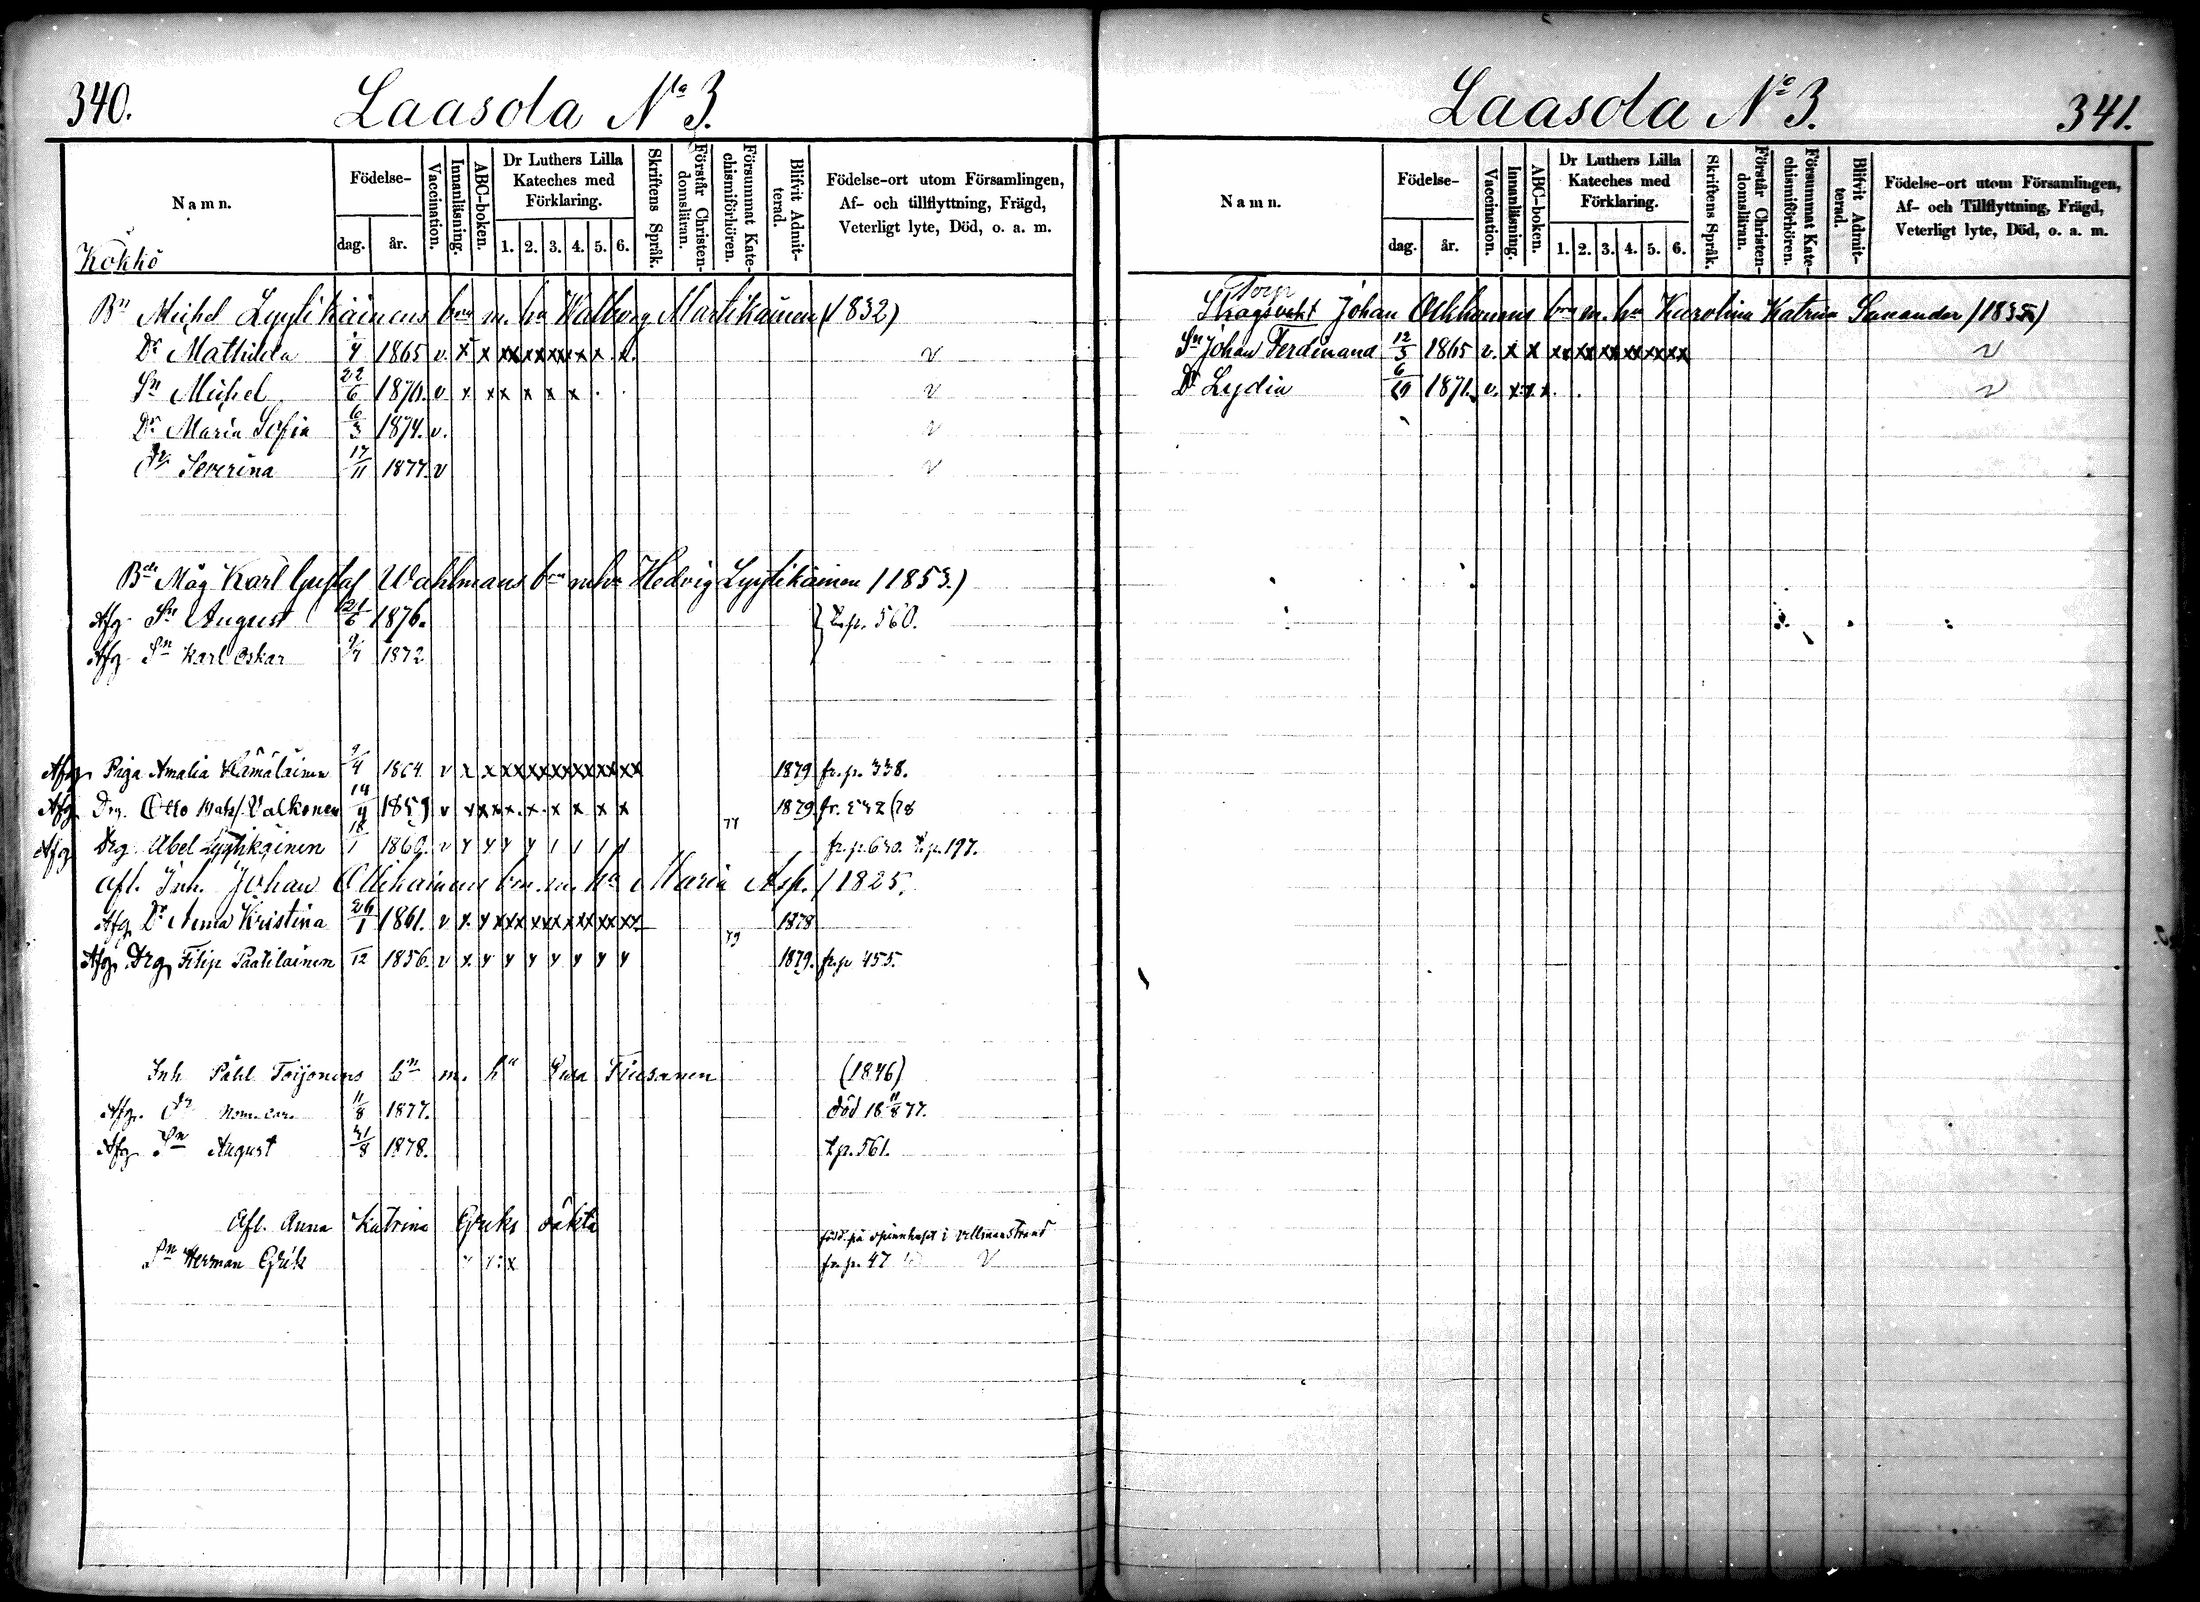 340.
Laasola No 3.
Namn.
Födelse-
dag.
år.
Vaccination.
Innanläsning.
ABC-boken.
Dr Luthers Lilla Kateches med Förklaring.
1. 2. 3. 4. 5. 6.
Skriftens Språk.
Förstår Christendomsläran.
Försummat Katechismiförhören.
Blifvit Admitterad.
Födelse-ort utom Församlingen, Af- och tillflyttning, Frägd, Veterligt lyte, Död, o. a. m.
Kokko
Bn Michel Lyytikäinens brn m. ha Walborg Martikainen (1832)
Dr Mathilda 4 1865 v. x x xx xx xx x x x. v
Sn Michel 22/6 1870. v x x x x x x . . v
Dr Maria Sofia 6/3 1874. v. v
Dr Severina 17/11 1877. v v
Bde Måg Karl Gustaf Wahlmans brn m ha Hedvig Lyytikäinen (1853.)
Afg. Sn August 21/6 1876. } T. p. 560.
Afg Sn Karl Oskar 9/7 1872
Afg Piga Amalia Hämäläinen 9/4 1864. v x x xx xx xx xx xx xx 1879 fr. p. 338.
Afg Drg. Otto Mats/ Valkonen 14/9 1859 v x x x x x x x x 1879 fr. 532 (78
Afg Drg Abel Lyytikäinen 18/1 1860. v 77 fr. p. 630. T. p. 197.
Afl. Inh. Johan Ollikainens brn. m. ha Maria Asp. (1825.
Afg Dr Anna Kristina 26/1 1861. v x x xx xx xx xx xx xx 1878
Afg. Drg Filip Paatilainen /12 1856. v x 79 1879. fr. p 455.
Inh Påhl Toijonens bn m. ha Eva Tiusanen (1846)
Afg. Dr 11/8 1877. död 18 11/8 77.
Afg Sn August 31/8 1878. T p. 561.
Afl. Anna Katrina Eriks
Sn Herman Erik x född på spinnhuset i Villmanstrand
fr. p. 47 v
Laasola No 3.
341.
Namn.
Födelse-
dag.
år.
Vaccination.
Innanläsning.
ABC-boken.
Dr Luthers Lilla Kateches med Förklaring.
1. 2. 3. 4. 5. 6.
Skriftens Språk.
Förstår Christendomsläran.
Försummat Katechismiförhören.
Blifvit Admitterad.
Födelse-ort utom Församlingen, Af- och Tillflyttning, Frägd, Veterligt lyte, Död, o. a. m.
Torp
Skogsvakt Johan Olkkonens brn m. ha Karolina Katrina Savander (1835)
Sn Johan Ferdinand 12/3 1865 v. x x xx xx xx xx xx xx v
Dr Lydia 6/10 1871. v. x x x. . v